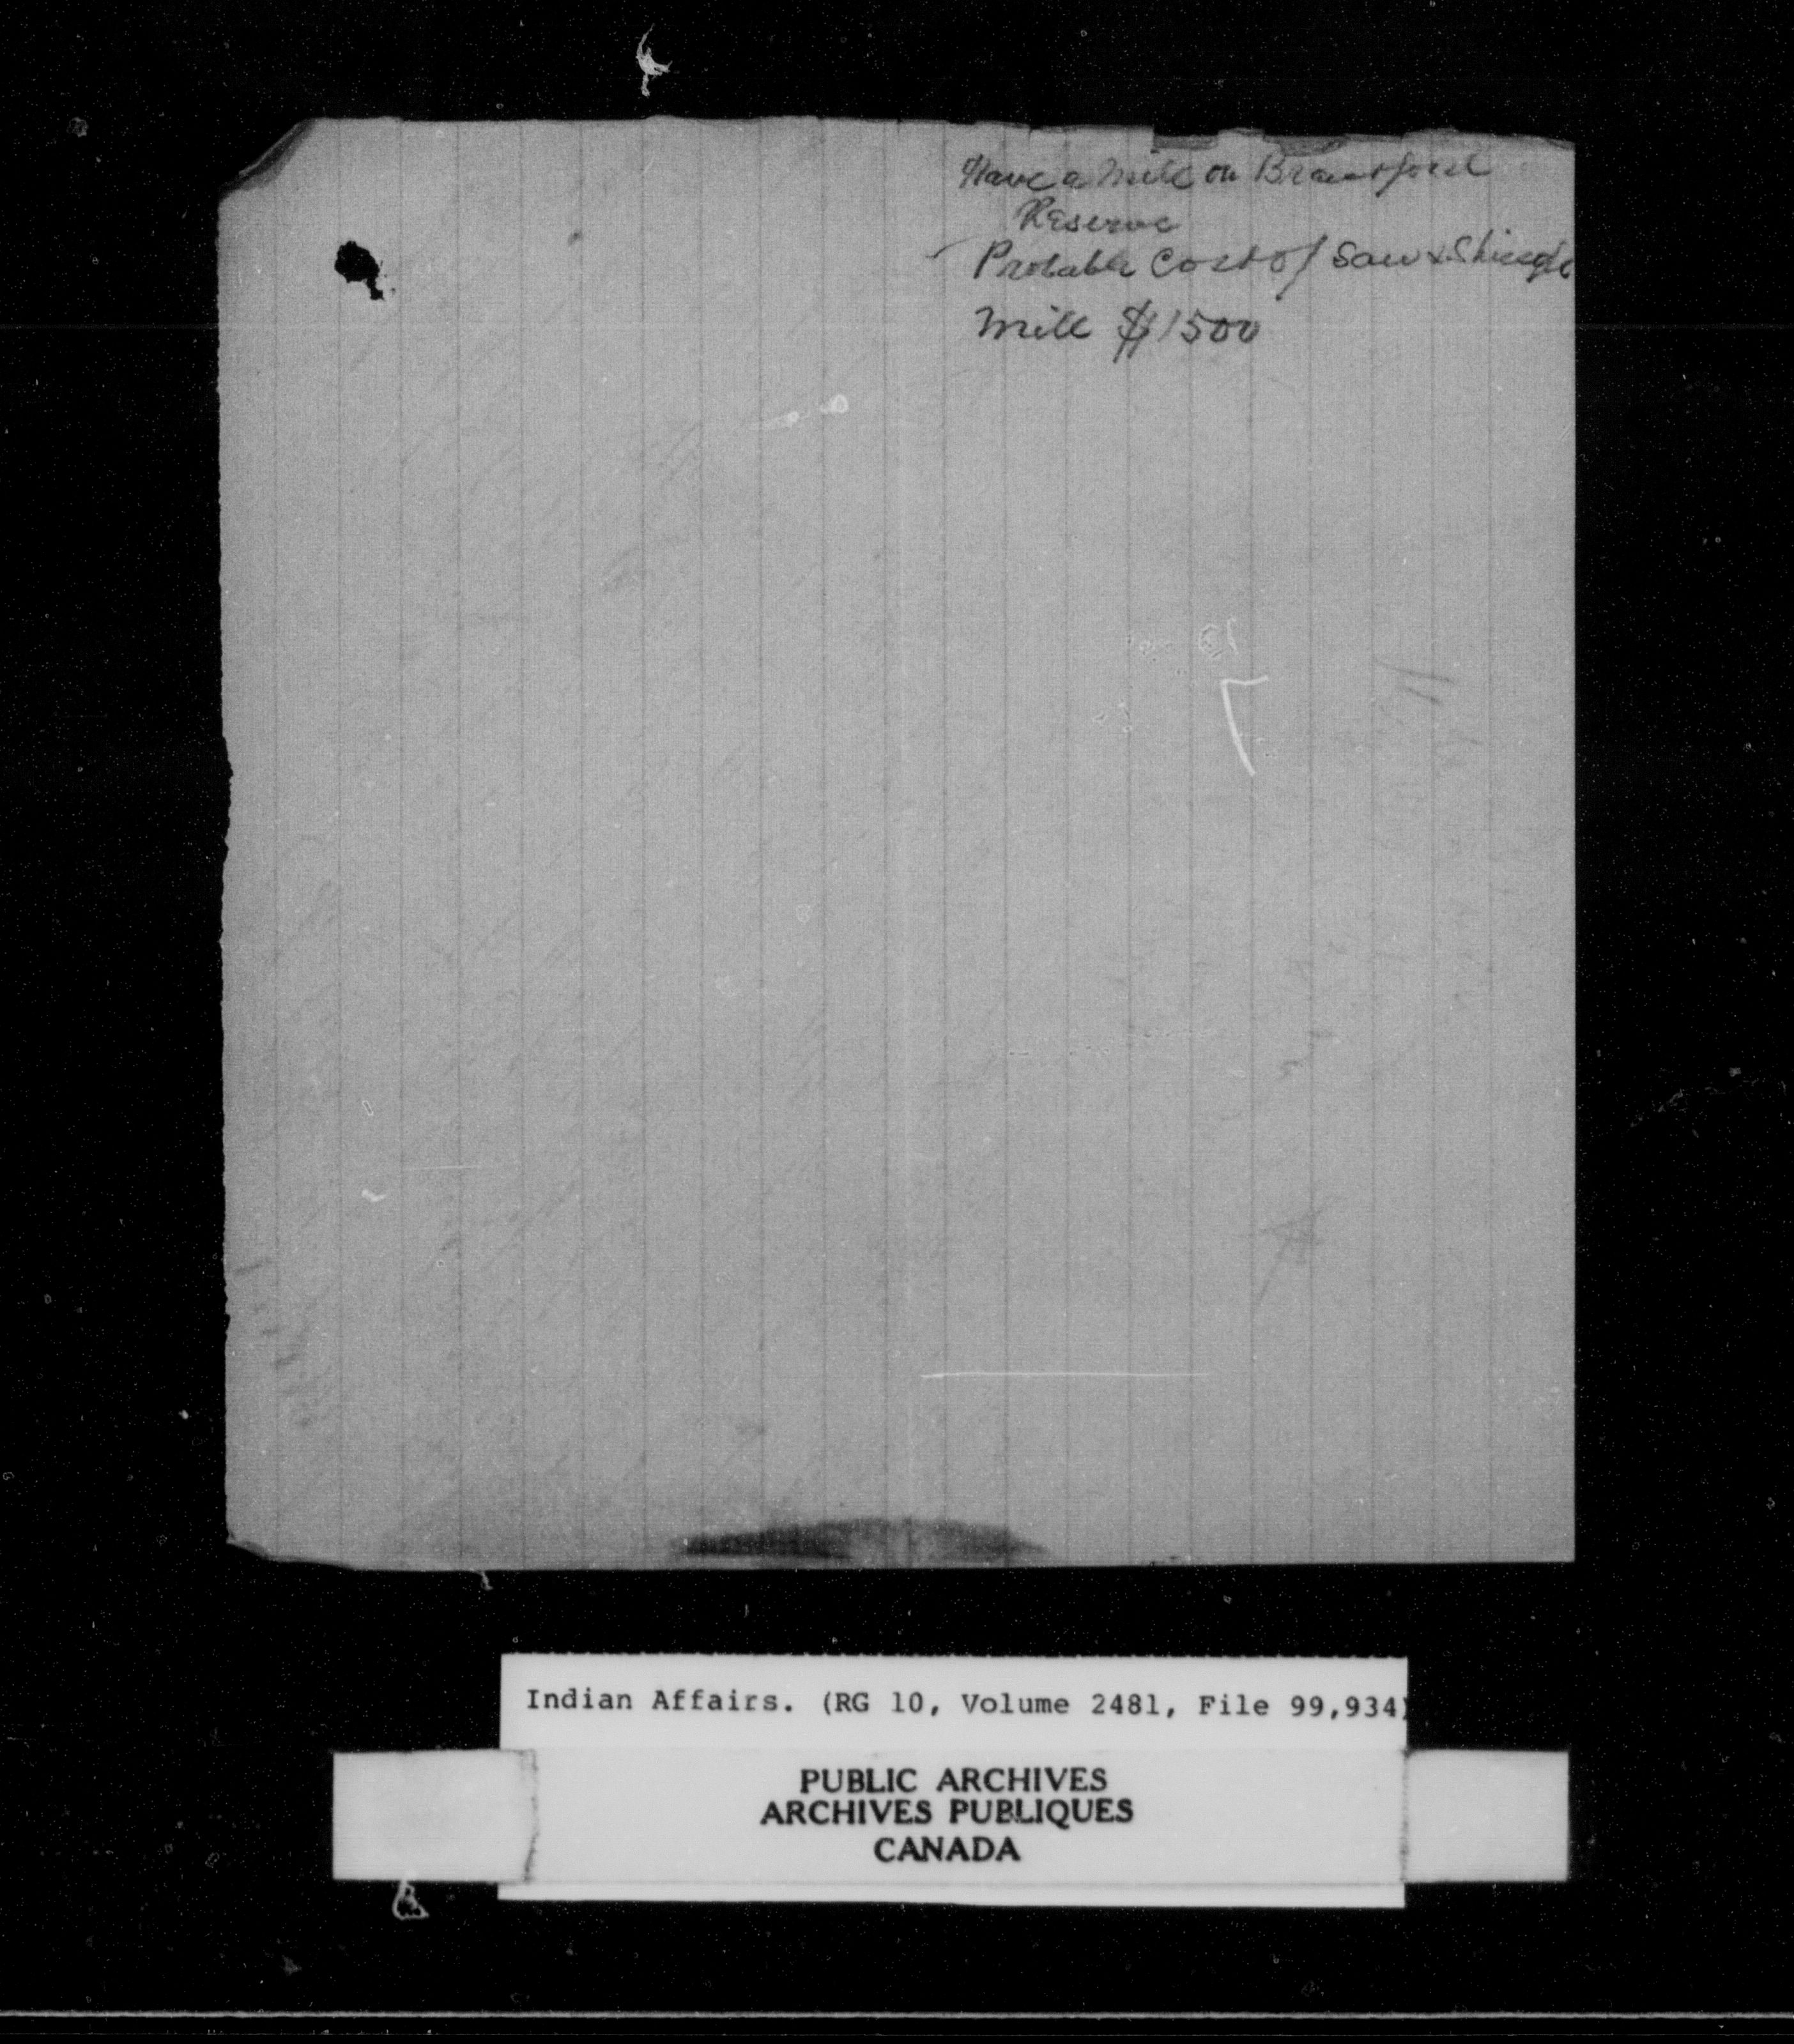 Have a Mill on Brantford
Reserve
Probable Cost of Saw & Shingle
Mill $1500
Indian Affairs. (RG 10, Volume 2481, File 99,934)
PUBLIC ARCHIVES
ARCHIVES PUBLIQUES
CANADA